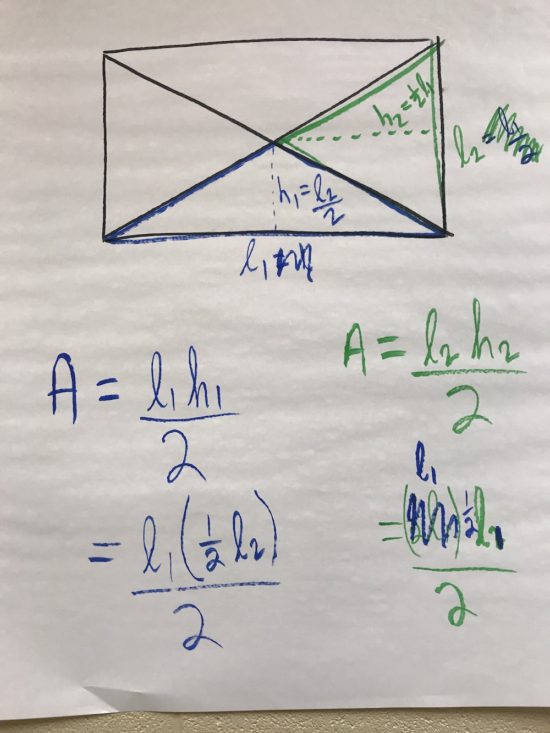 h₂ = ½l₁
l₂
h₁ = l₂/2
l₁
A = l₁h₁/2
= l₁(½l₂)/2
A = l₂h₂/2
l₁